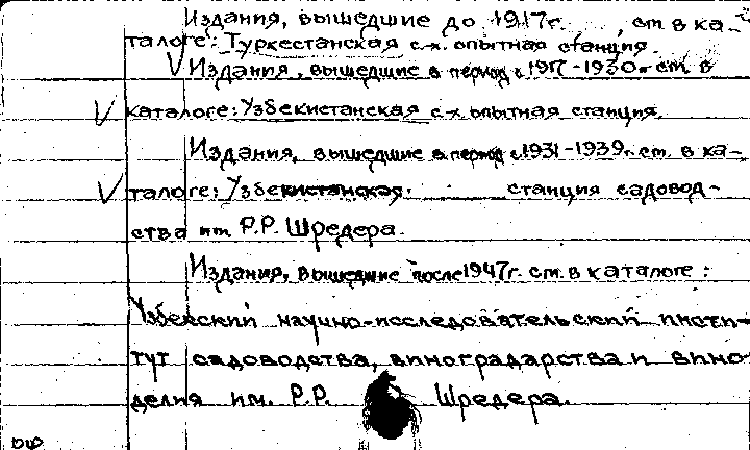 Издания, вышедшие до 1917г. , см. в ка-
талоге: Туркестанская с-х. опытная станция.
Издания, вышедшие в период с 1917-1930г. см. в
каталоге: Узбекистанская с-х опытная станция.
Издания, вышедшие в период с 1931-1939г. см. в ка-
талоге: Узбекистанская станция садовод-
ства им. Р.Р. Шредера.
Издания, вышедшие после 1947г. см. в каталоге:
Узбекский научно-исследовательский инсти-
тут садоводства, виноградарства и вино-
делия им. Р.Р. Шредера.